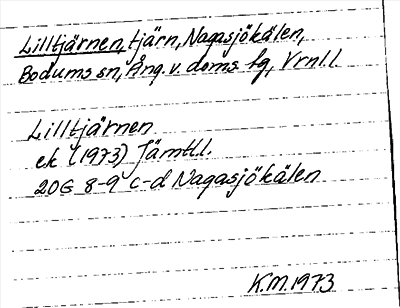 Lilltjärnen, tjärn, Nagasjökälen,
Bodums sn, Ång. v. doms. tg, Vrnl.l.
Lilltjärnen
ek (1973) Jämtl.l.
20G 8-9 c-d Nagasjökälen
K.M. 1973